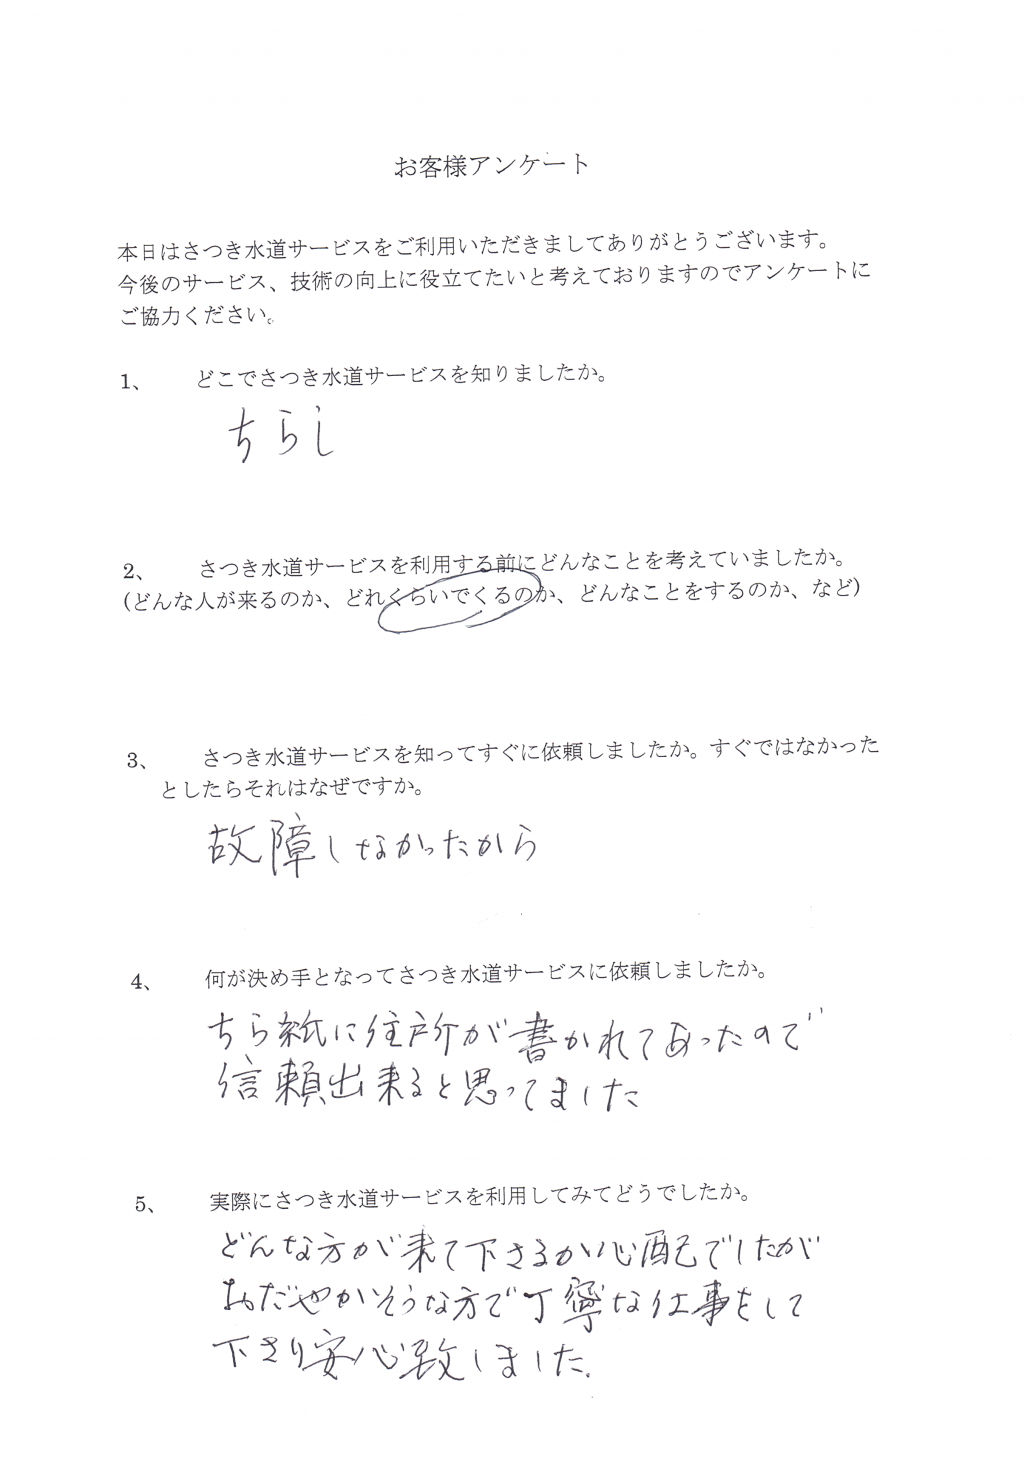 お客様アンケート
本日はさつき水道サービスをご利用いただきましてありがとうございます。
今後のサービス、技術の向上に役立てたいと考えておりますのでアンケートに
ご協力ください。
1、 どこでさつき水道サービスを知りましたか。
ちらし
2、 さつき水道サービスを利用する前にどんなことを考えていましたか。
(どんな人が来るのか、どれくらいでくるのか、どんなことをするのか、など)
3、 さつき水道サービスを知ってすぐに依頼しましたか。すぐではなかった
としたらそれはなぜですか。
故障しなかったから
4、 何が決め手となってさつき水道サービスに依頼しましたか。
ちら紙に住所が書かれてあったので
信頼出来ると思ってました
5、 実際にさつき水道サービスを利用してみてどうでしたか。
どんな方が来て下さるか心配でしたが
おだやかそうな方で丁寧な仕事をして
下さり安心致しました.